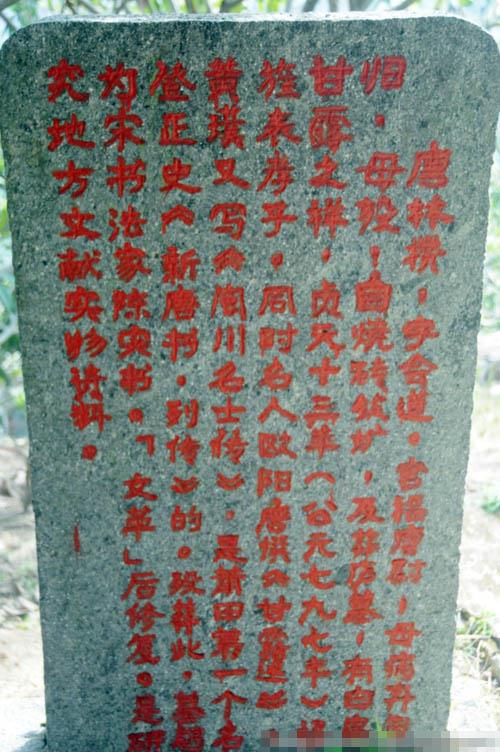 唐林攒，字合道。官福唐尉，母病弃
归，母殁，自烧砖筑圹，及葬庐墓，有白
甘露之祥，贞元十三年（公元七九七年）诏
旌表孝子，同时名人欧阳詹撰《甘露述》
黄璞又写《闽川名士传》，是莆田第一个名
登正史《新唐书·列传》的。殁葬此，墓题
为宋书法家陈宓书。「文革」后修复。是研
究地方文献实物资料。